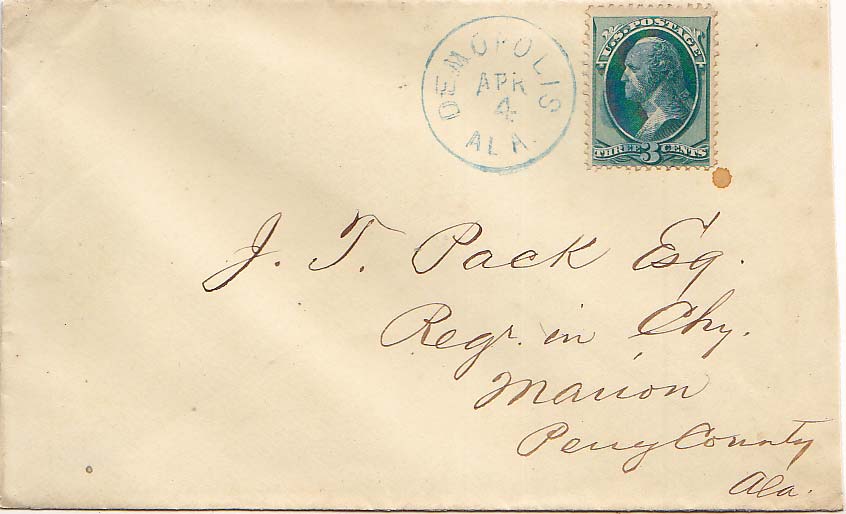 DEMOPOLIS
APR
4
ALA.
U.S. POSTAGE
THREE 3 CENTS
J. T. Pack Esq.
Regr. in Chy.
Marion
Perry County
Ala.